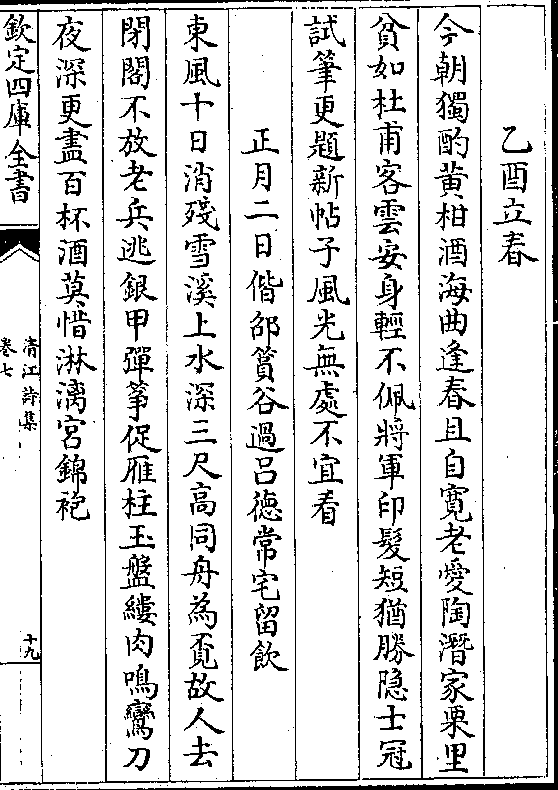 乙酉立春
今朝獨酌黄柑酒海曲逢春且自寛老愛陶潛家栗里
貧如杜甫客雲安身輕不佩將軍印髮短猶勝隐士冠
試筆更題新帖子風光無處不宜看
正月二日偕邵蕡谷過吕德常宅留飲
東風十日消殘雪溪上水深三尺高同舟為覔故人去
閉閣不放老兵逃銀甲彈筝促雁柱玉盤縷肉鳴鸞刀
夜深更盡百杯酒莫惜淋漓宮錦袍
欽定四庫全書
清江詩集
卷七
十九